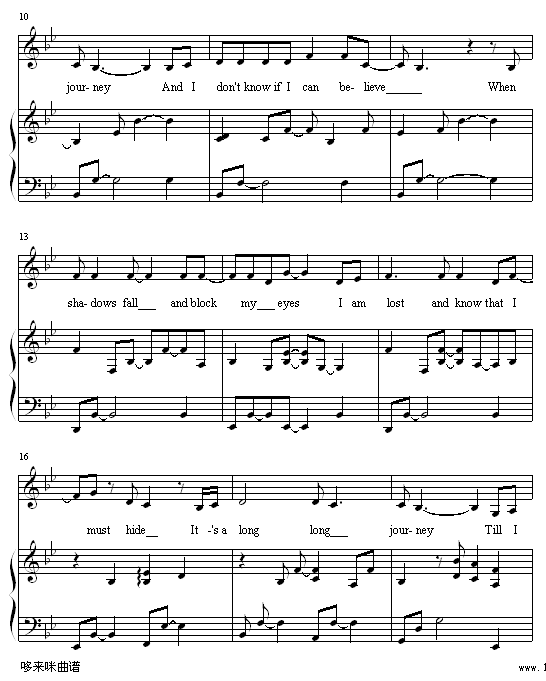 10
jour- ney And I don't know if I can be- lieve______ When
13
sha- dows fall___ and block my___ eyes I am lost and know that I
16
must hide__ It -'s a long long___ jour- ney Till I
哆来咪曲谱 www. 1